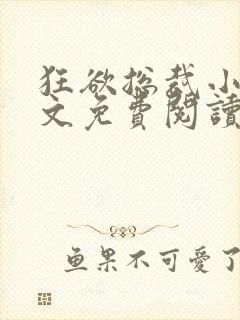 狂欲总裁小
文免費閱讀
鱼果不可愛了